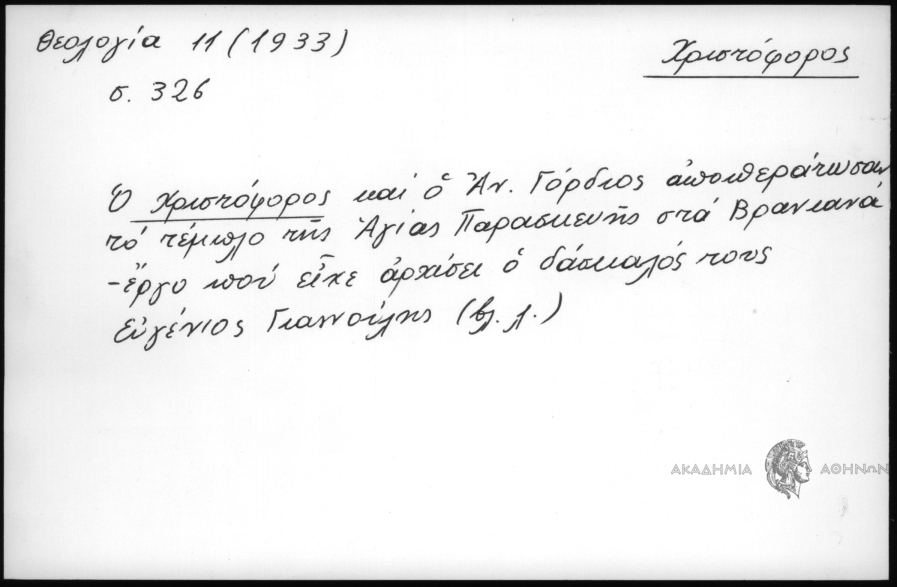 Θεολογία 11 (1933)
σ. 326
Χριστόφορος
Ὁ Χριστόφορος καί ὁ Ἀν. Γόρδιος ἀποπεράτωσαν
τό τέμπλο τῆς Ἁγίας Παρασκευῆς στά Βρανιανά
-ἔργο πού εἶχε ἀρχίσει ὁ δάσκαλός τους
Εὐγένιος Γιαννούλης (βλ. λ.)
ΑΚΑΔΗΜΙΑ ΑΘΗΝΩΝ